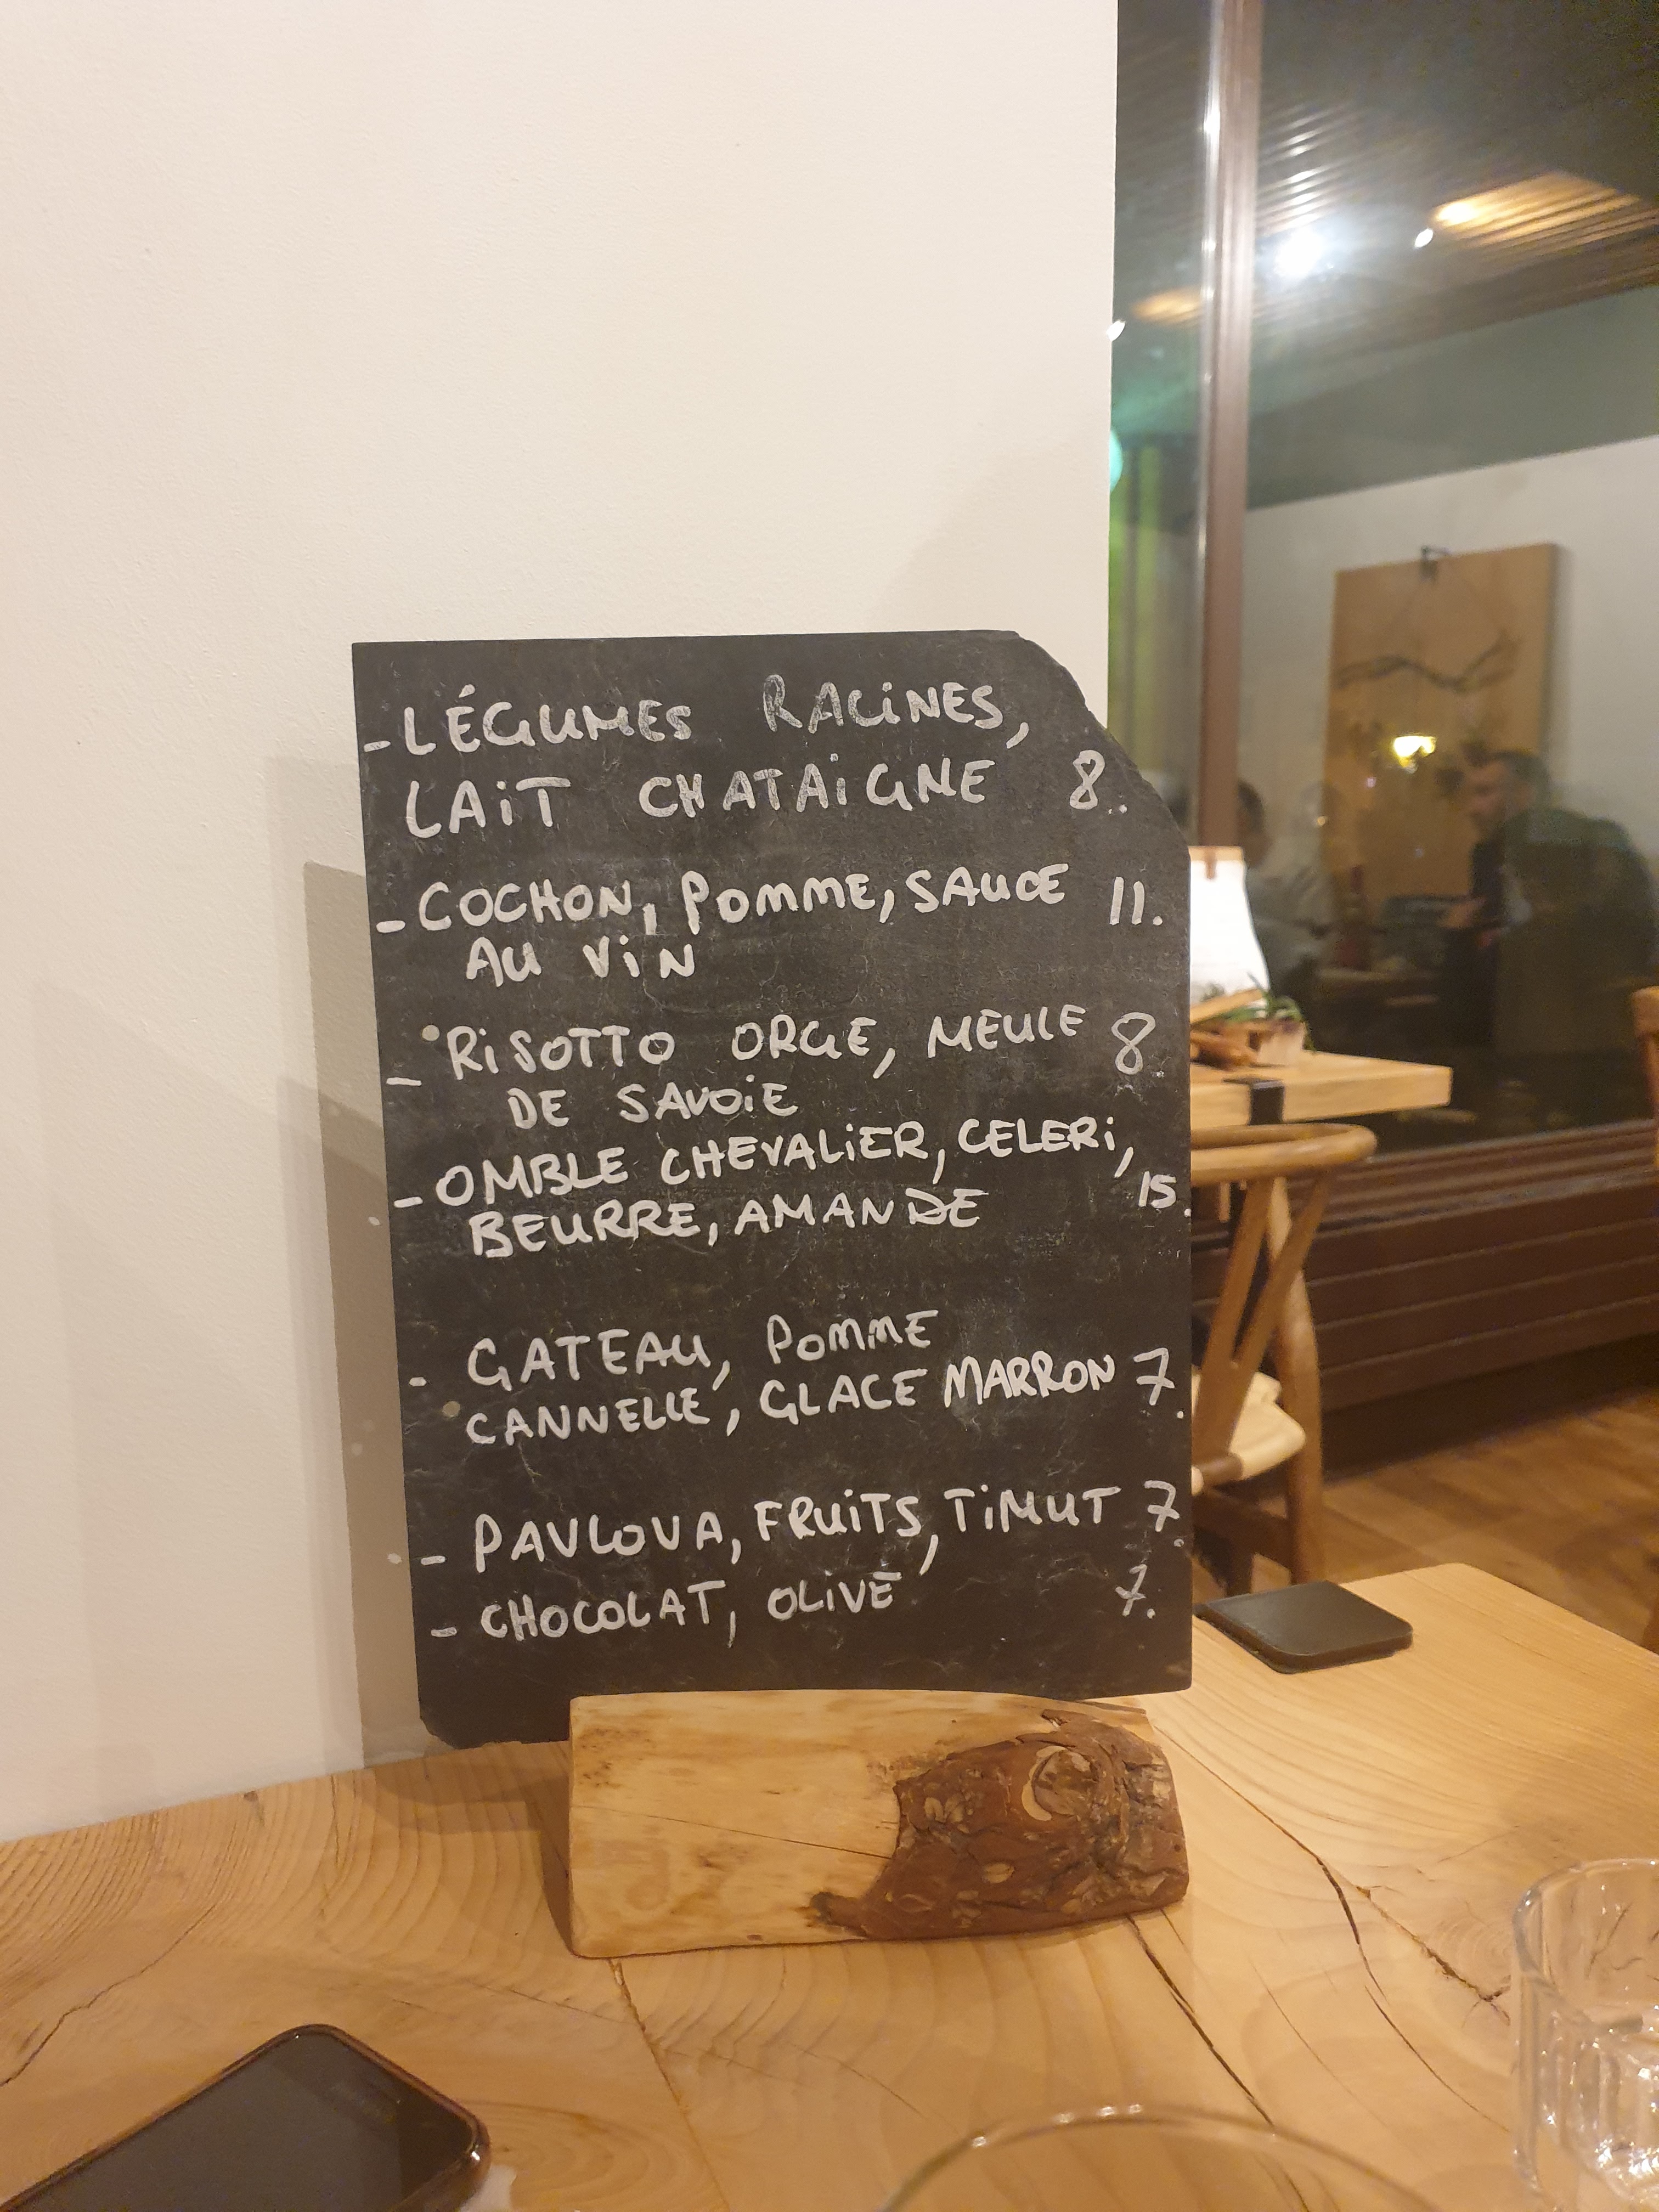 - LÉGUMES RACINES,
LAIT CHATAIGNE 8.
- COCHON, POMME, SAUCE 11.
AU VIN
- RISOTTO ORGE, MEULE 8.
DE SAVOIE
- OMBLE CHEVALIER, CELERI,
BEURRE, AMANDE 15.
- GATEAU, POMME
CANNELLE, GLACE MARRON 7.
- PAVLOVA, FRUITS, TIMUT 7.
- CHOCOLAT, OLIVE 7.